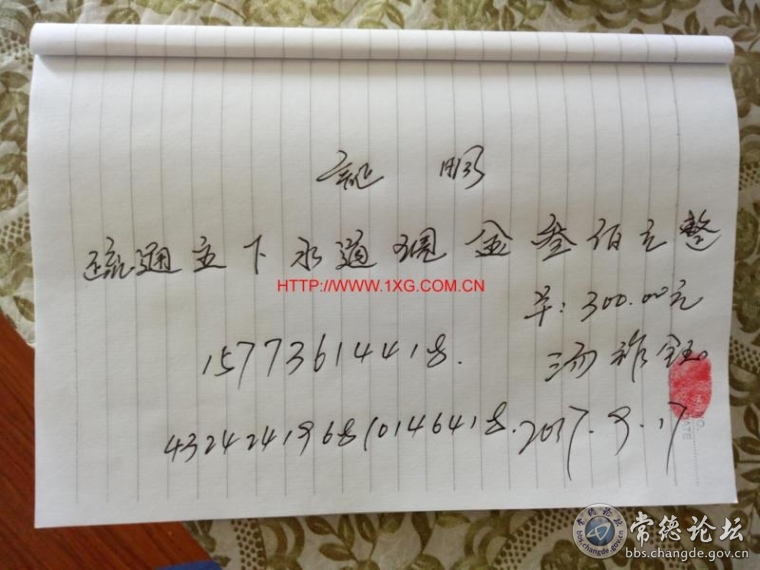 证明
疏通主下水道现金叁佰元整
HTTP://WWW.1XG.COM.CN
300.00元
15773614418.
汤祚钰
432424196810146418. 2017.9.17
常德论坛
bbs.changde.gov.cn